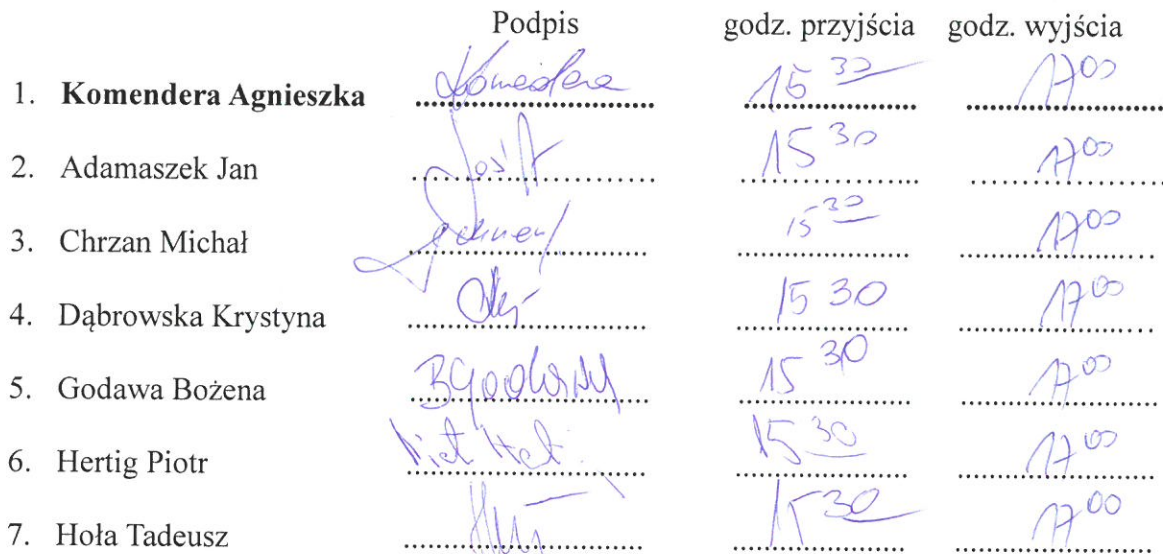 Podpis godz. przyjścia godz. wyjścia
1. Komendera Agnieszka Komendera 15 30 17 00
2. Adamaszek Jan 15 30 17 00
3. Chrzan Michał 15 30 17 00
4. Dąbrowska Krystyna 15 30 17 00
5. Godawa Bożena 15 30 17 00
6. Hertig Piotr 15 30 17 00
7. Hoła Tadeusz 15 30 17 00